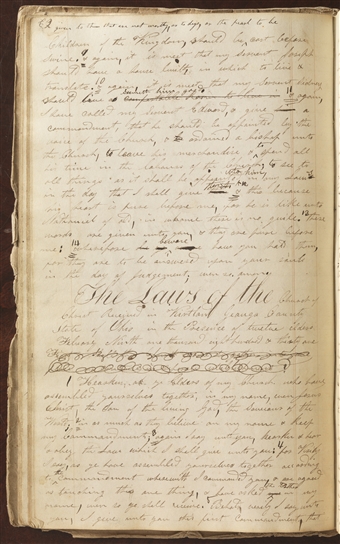 is given to them that are not worthy, or to dogs, or the pearl to be
Children of the Kingdom, should be cast before
swine. 9 & again, it is meet that my servant Joseph
should have a house built, in which to live &
translate. 10 & again, it is meet that my servant Sidney
should live as seemeth him good
11 & again,
I have called my servant Edward, & give a
commandment, that he should be appointed by the
voice of the Church, & ordained a bishop unto
the Church, to leave his merchandise & to spend all
his time in the labours of the Church; to see to
all things as it shall be appointed unto him, in my laws
in the day that I shall give them & this because
his heart is pure before me, for he is like unto
Nathaniel of old, in whom there is no guile. 12 these
words are given unto you, & they are pure before
me; wherefore beware how you hold them,
for they are to be answered upon your souls
in the day of judgement, even so, amen.
The Laws of the Church of
Christ Received in Kirtland Geauga County
State of Ohio in the Presence of twelve elders
February Ninth one thousand eight hundred & thirty one
1 Hearken, O ye Elders of my Church who have
assembled yourselves together, in my name, even Jesus
Christ, the Son of the living God, the Saviour of the
World, 2 in as much as they believe on my name & keep
my Commandments; 3 again I say unto you, hearken & hear
& obey the laws which I shall give unto you: 4 for Verily
I say, as ye have assembled yourselves together according
to the Commandment wherewith I commanded you, & are agreed
as touching this one thing, & have asked the Father in my
name, even so ye shall receive. Behold, verily I say unto
you, I give unto you this first Commandment, that